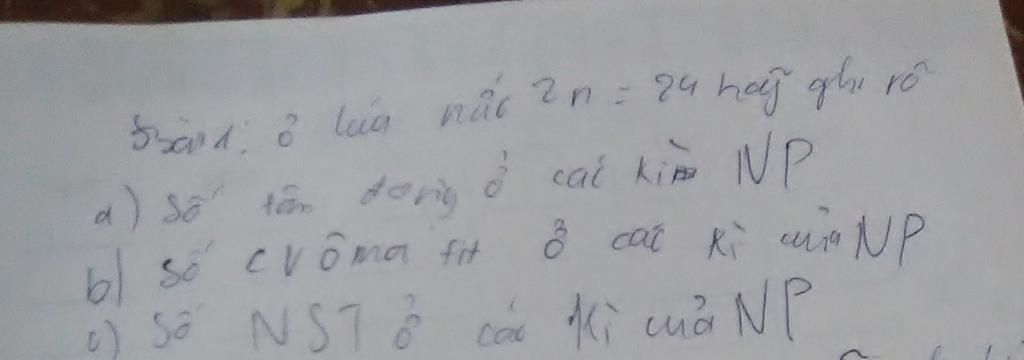 Bài 1: ở lúa nước 2n = 24 hãy ghi rõ
a) Số tâm động ở các kì NP
b) Số crômatit ở các kì của NP
c) Số NST ở các kì của NP